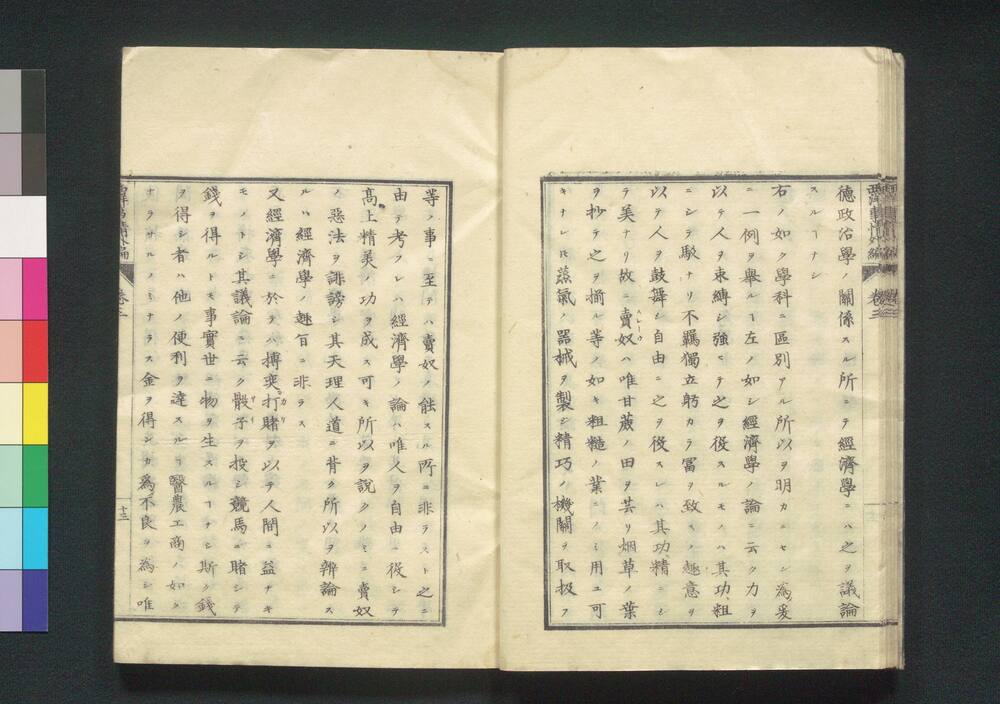 西洋事情外編 卷三
德政治學ノ關係スル所ニテ經濟學ニハ之ヲ議論
スルヿナシ
右ノ如ク學科ニ區別アル所以ヲ明カニセン爲メ爰
ニ一例ヲ舉ルヿ左ノ如シ經濟學ノ論ニ云ク力ヲ
以テ人ヲ束縛シ強ヒテ之ヲ役スルモノハ其功粗
ニシテ駁ナリ不羈獨立躬カラ富ヲ致スノ趣意ヲ
以テ人ヲ鼓舞シ自由ニ之ヲ役スレハ其功精ニシ
テ美ナリ故ニ賣奴ハ唯甘蔗ノ田ヲ芸リ烟草ノ葉
ヲ抄テ之ヲ摘ル等ノ如キ粗糙ノ業ニノミ用ユ可
キナレ𪜈蒸氣ノ器械ヲ製シ精巧ノ機關ヲ取扱フ
等ノ事ニ至テハ賣奴ノ蝕スル所ニ非ラスト之ニ
由テ考フレハ經濟學ノ論ハ唯人ヲ自由ニ役シテ
髙上精美ノ功ヲ成ス可キ所以ヲ說クノミニテ賣奴
ノ惡法ヲ誹謗シ其天理人道ニ背ク所以ヲ辨論ス
ルハ經濟學ノ趣旨ニ非ラス
又經濟學ニ於テハ搏奕打賭ヲ以テ人間ニ益ナキ
モノトシ其議論ニ云ク骰子ヲ投シ競馬ニ賭シテ
錢ヲ得ルト𪜈事實世ニ物ヲ生スルヿナシ斯ク錢
ヲ得シ者ハ他ノ便利ヲ達スルヿ醫農工商ノ如ク
ナラサルノミナラス金ヲ得シカ爲不良ヲ為シ唯
卷三
十三